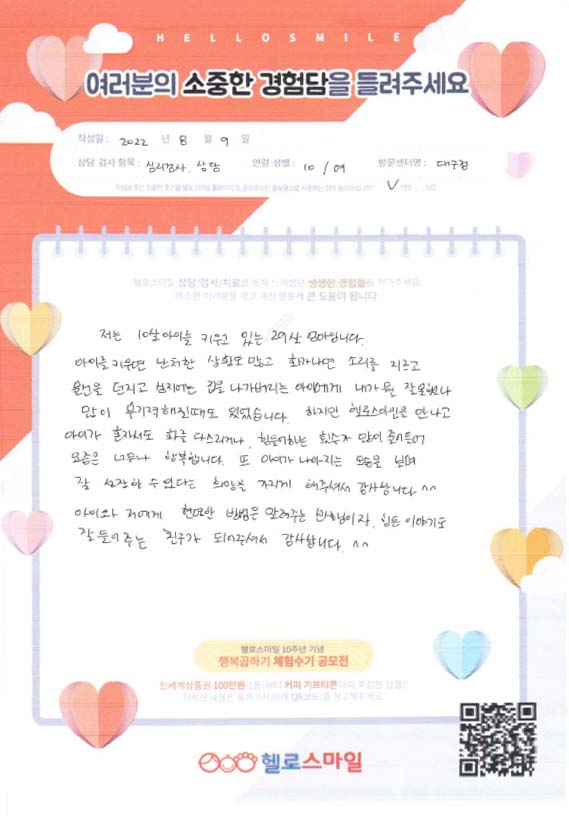 HELLOSMILE
여러분의 소중한 경험담을 들려주세요
작성일 : 2022 년 8 월 9 일
상담 검사 항목 : 심리검사, 상담 연령 성별 : 10 / 여 방문센터명 : 대구점
V YES NO
헬로스마일 상담/검사/치료를 통해 느끼셨던 생생한 경험들을 적어주세요.
비슷한 어려움을 겪고 계신 분들께 큰 도움이 됩니다
저는 10살아이를 키우고 있는 29살 엄마입니다.
아이를 키우면 난처한 상황도 많고 화가나면 소리를 지르고
물건을 던지고 심지에는 집을 나가버리는 아이에게 내가 뭔 잘못했나
많이 무기력해질때도 있었습니다. 하지만 헬로스마일을 만나고
아이가 혼자서도 화를 다스리거나, 힘들어하는 횟수가 많이 줄어들어
요즘은 너무나 행복합니다. 또 아이가 나아지는 모습을 보며
잘 성장할 수 있겠다는 희망을 가지게 해주셔서 감사합니다 ^^
아이와 저에게 현명한 방법을 알려주는 선생님이자, 힘든 이야기도
잘 들어주는 친구가 되어주셔서 감사합니다. ^^
헬로스마일 10주년 기념
행복곱하기 체험수기 공모전
신세계상품권 100만원(1등)부터 커피 기프티콘까지 푸짐한 상품!!
자세한 내용은 홈페이지(아래 QR코드)를 참고해주세요.
헬로스마일